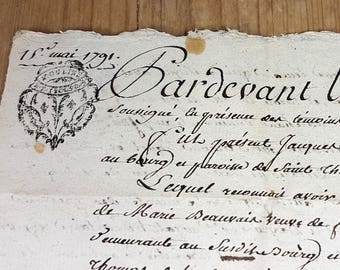 15e. mai 1791.
Pardevant
Sousigné, la présence des temoins
fut présent Jacques
au bourg et paroise de Saint Th
Lequel reconnoit avoir
de Marie Beauvais veuve de f
Demeurante au Susdit Bourg